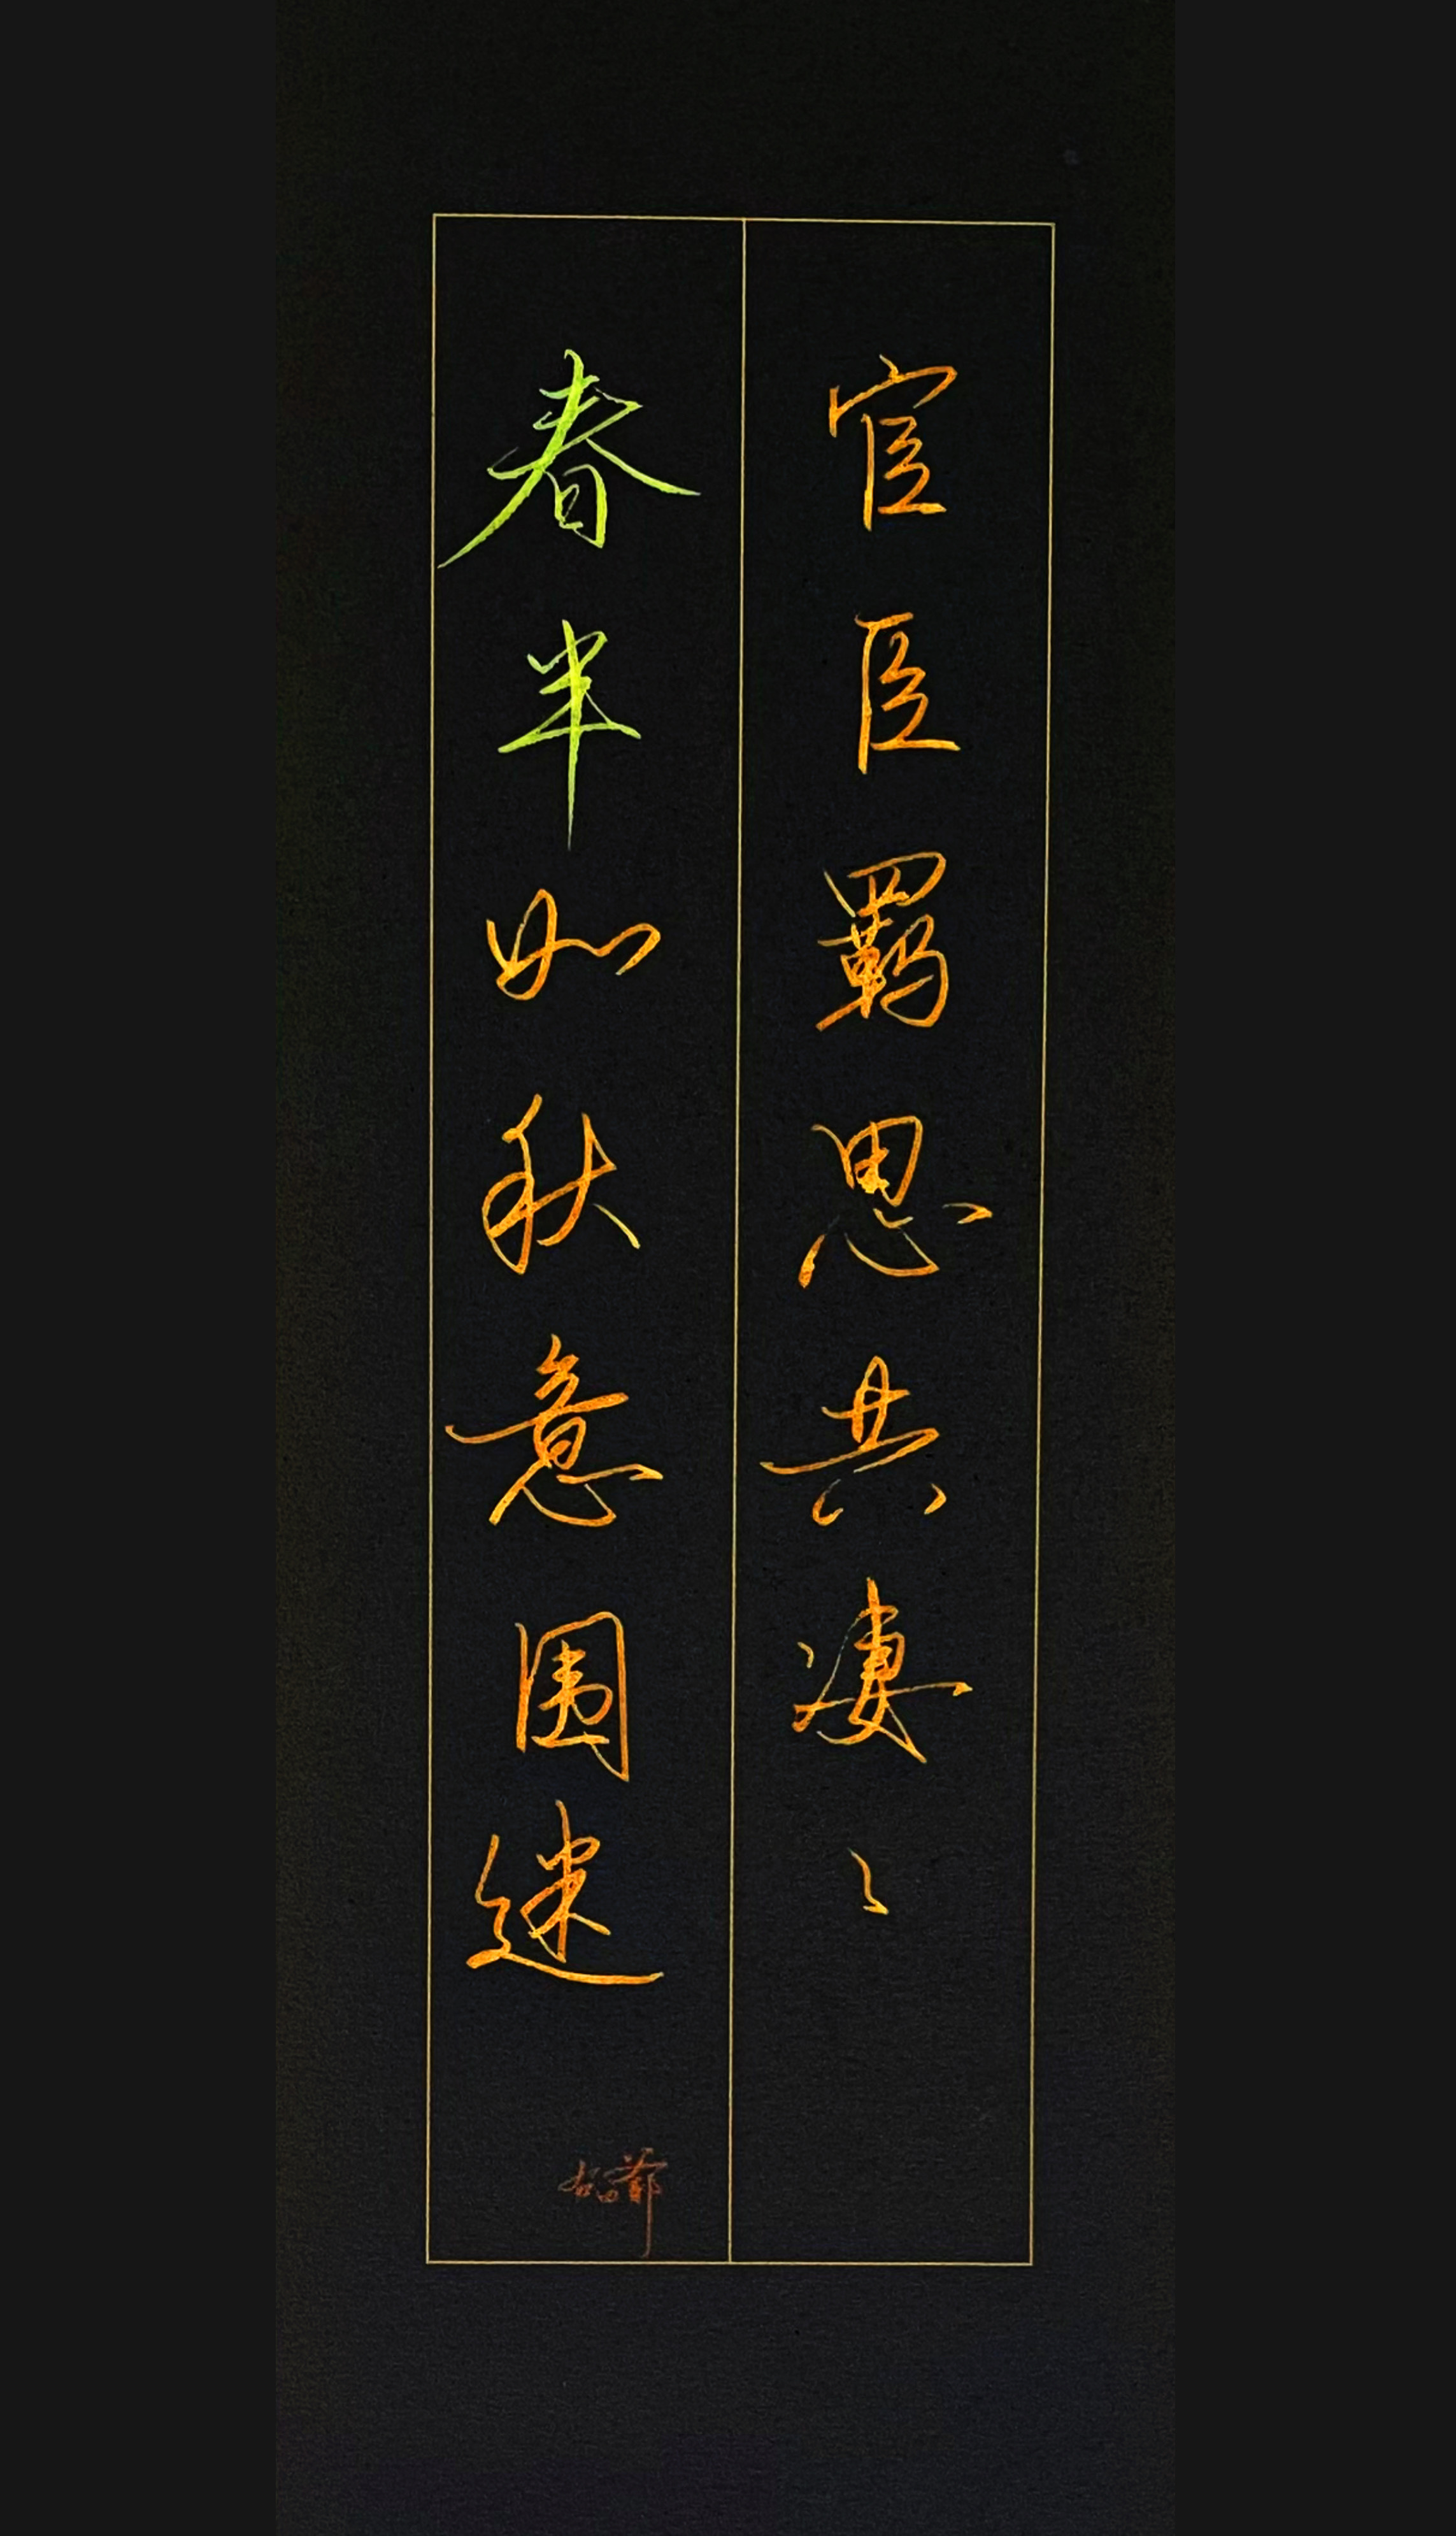 宦臣羁思共凄〻
春半如秋意围迷